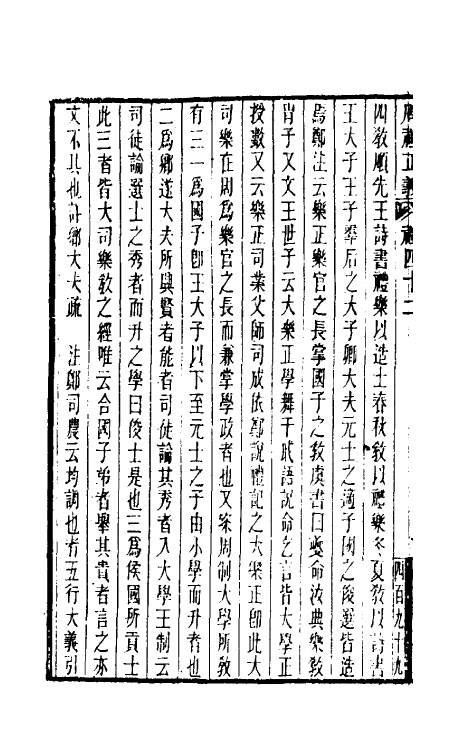 周禮正義 禮四十二
四百九十九
四敎順先王詩書禮樂以造士春秋敎以禮樂冬夏敎以詩書
王大子王子羣后之大子卿大夫元士之適子國之俊選皆造
焉鄭注云樂正樂官之長掌國子之敎虞書曰夔命汝典樂敎
胄子又文王世子云大樂正學舞干戚語說命乞言皆大學正
授數又云樂正司業父師司成依鄭說禮記之大樂正卽此大
司樂在周爲樂官之長而兼掌學政者也又案周制大學所敎
有三一爲國子卽王大子以下至元士之子由小學而升者也
二爲鄉遂大夫所興賢者能者司徒論其秀者入大學王制云
司徒論選士之秀者而升之學曰俊士是也三爲侯國所貢士
此三者皆大司樂敎之經唯云合國子弟者舉其貴者言之亦
文不具也詳鄉大夫疏　注鄭司農云均調也者五行大義引